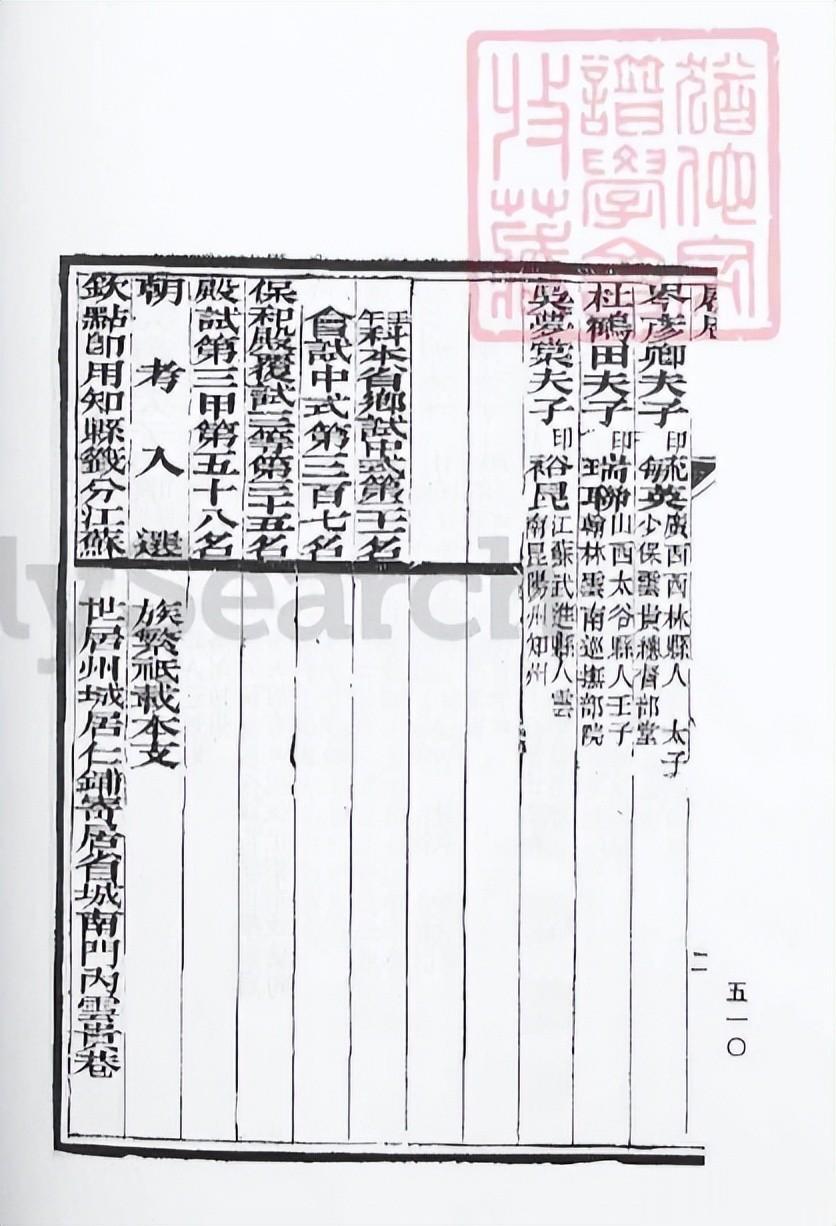 猶他家
譜學會
收藏
岑彥卿夫子印毓英廣西西林縣人 太子
少保雲貴總督部堂
杜鶴田夫子印瑞聯山西太谷縣人壬子
翰林雲南巡撫部院
吳夢棠夫子印裕昆江蘇武進縣人雲
南昆陽州知州
壬午科本省鄉試中式第名
會試中式第三百七名
保和殿覆試三等第三十五名
殿試第三甲第五十八名
朝考入選
欽點即用知縣籤分江蘇
族繁祗載本支
世居州城居仁鋪寄居省城南門內雲貴巷
二
五一〇
lySearch